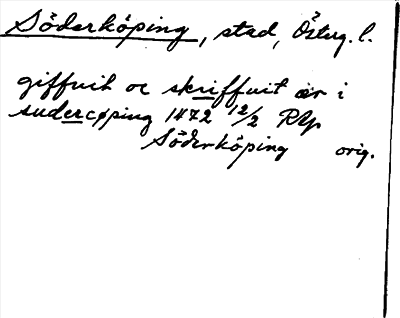 Söderköping, stad, Österg. l.
giffuit oc skriffuit är i
sudercøping 1472 12/2 RAp
Söderköping orig.